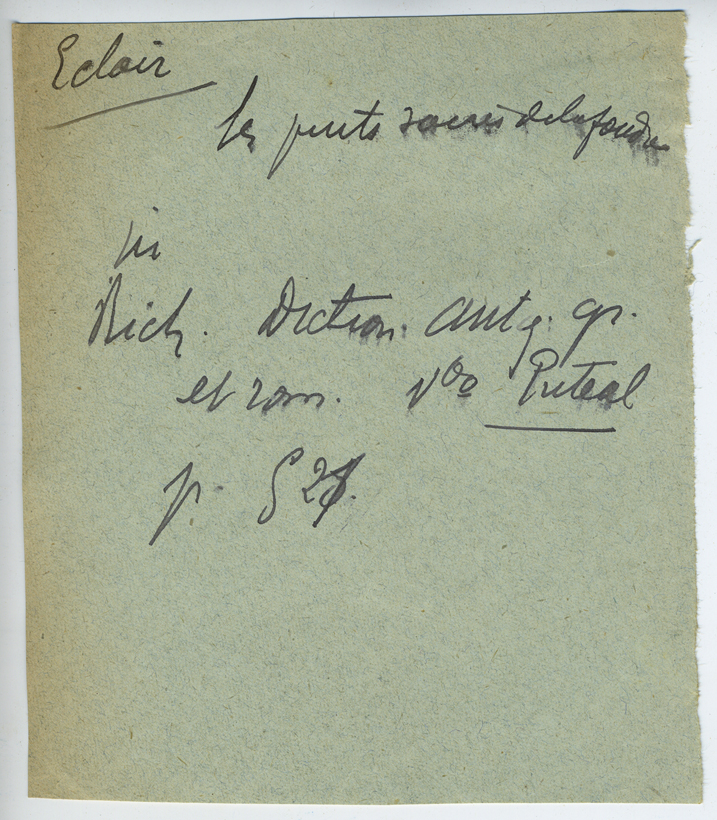 Eclair
les puits sacrés de la foudre
in
Rich. Diction. antq. gr.
et rom. vbo Puteal
p. 527.